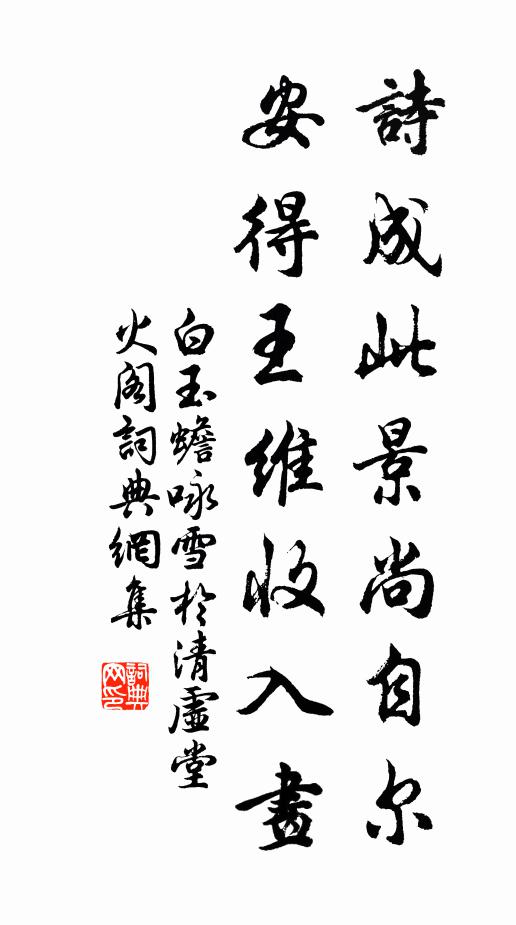 詩成此景尚自尔
安得王維收入畫
白玉蟾咏雪於清虛堂
火閣詞典網集
詞典网印